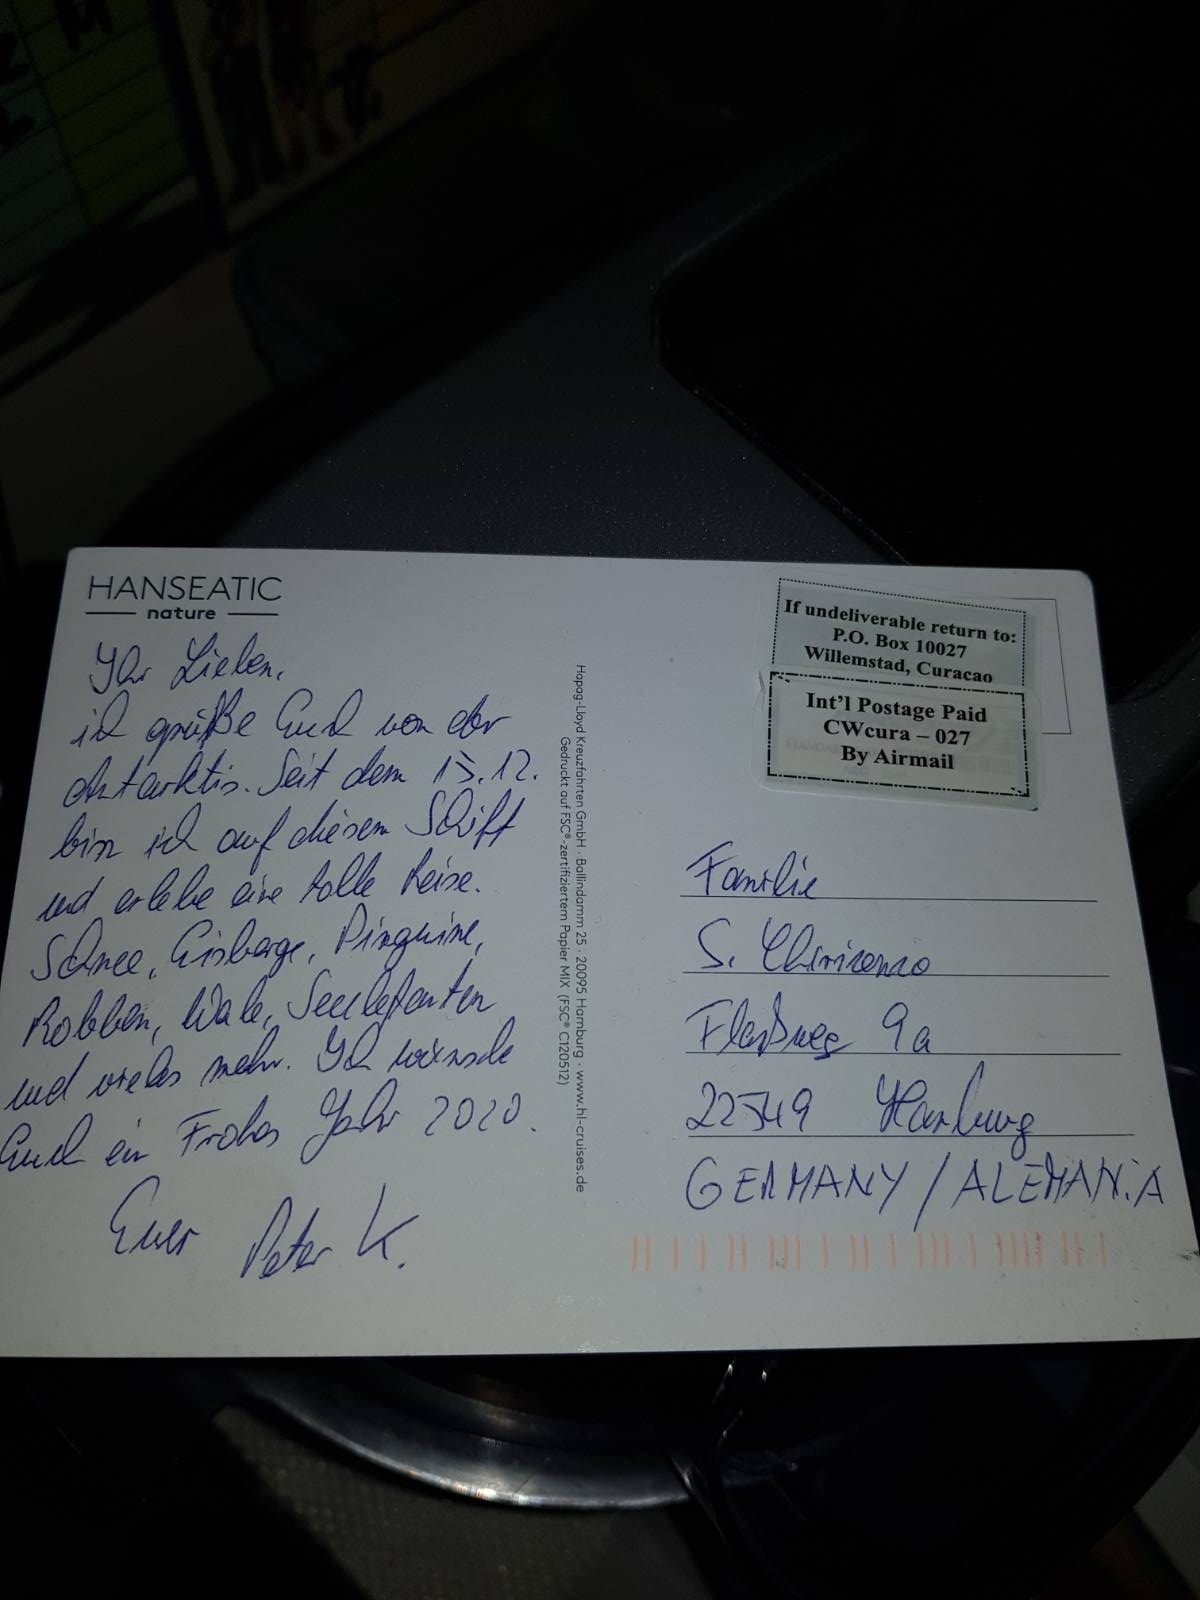 HANSEATIC
nature
Ihr Lieben,
ich grüße Euch von der
Antarktis. Seit dem 13.12.
bin ich auf diesem Schiff
und erlebe eine tolle Reise.
Schnee, Eisberge, Pinguine,
Robben, Wale, Seelefanten
und vieles mehr. Ich wünsche
Euch ein Frohes Jahr 2020.
Euer Peter K.
Hapag-Lloyd Kreuzfahrten GmbH · Ballindamm 25 · 20095 Hamburg · www.hl-cruises.de
Gedruckt auf FSC®-zertifiziertem Papier MIX (FSC® C120512)
If undeliverable return to:
P.O. Box 10027
Willemstad, Curacao
Int'l Postage Paid
CWcura – 027
By Airmail
Familie
S.
9a
22549 Hamburg
GERMANY / ALEMANIA